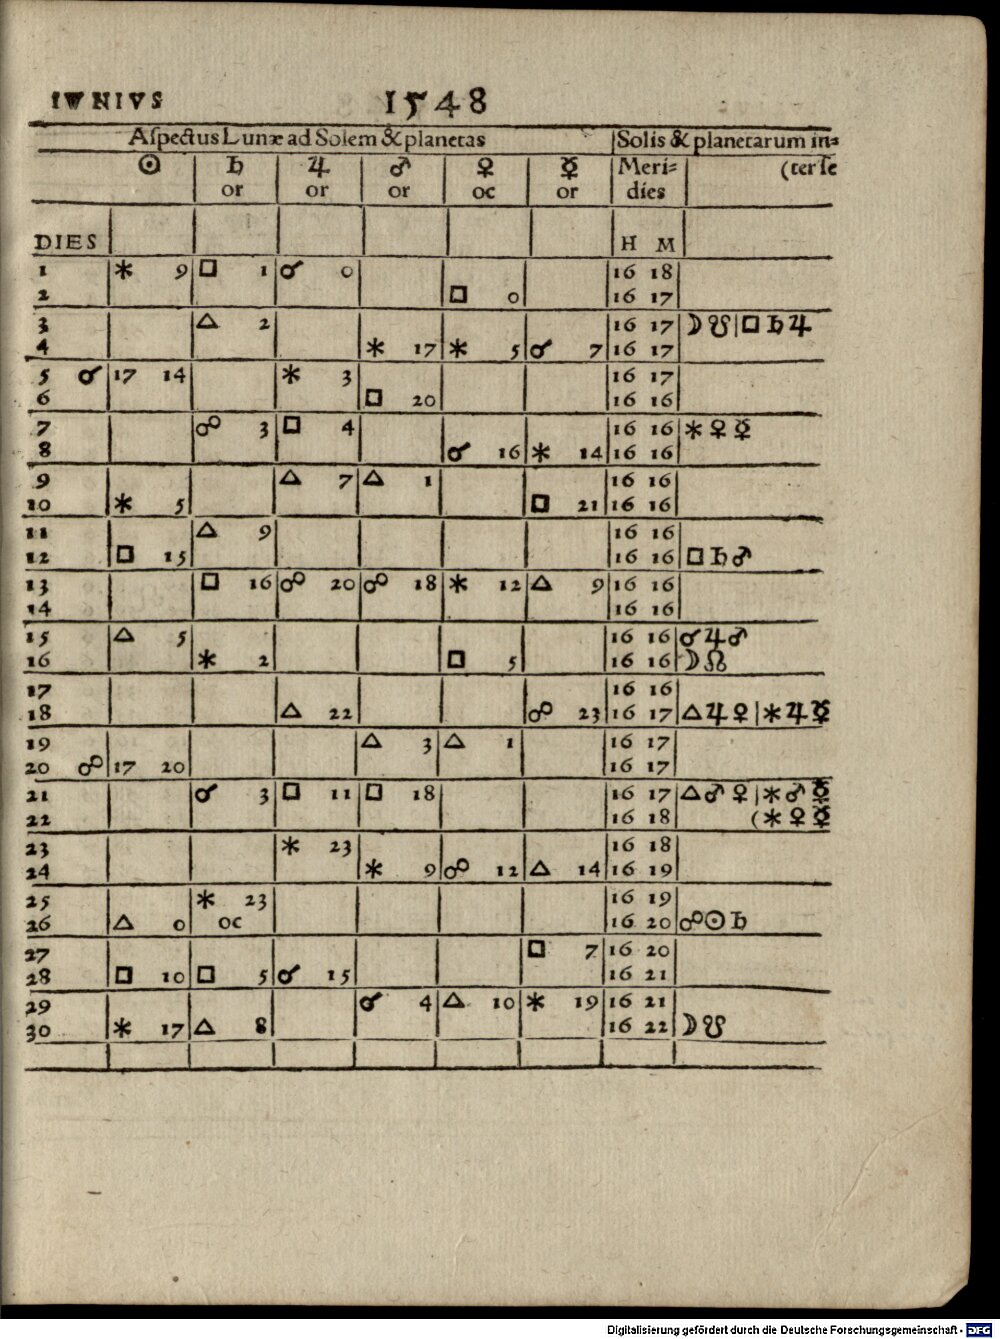 IVNIVS 1548
Aſpectus Lunæ ad Solem & planetas Solis & planetarum in=
☉ ♄ ♃ ♂ ♀ ☿ Meri= (ter ſe
or or or oc or dies
DIES H M
1 ⚹ 9 □ 1 ☌ 0 16 18
2 □ 0 16 17
3 △ 2 16 17 ☽ ☋ | □ ♄ ♃
4 ⚹ 17 ⚹ 5 ☌ 7 16 17
5 ☌ 17 14 ⚹ 3 16 17
6 □ 20 16 16
7 ☍ 3 □ 4 16 16 ⚹ ♀ ☿
8 ☌ 16 ⚹ 14 16 16
9 △ 7 △ 1 16 16
10 ⚹ 5 □ 21 16 16
11 △ 9 16 16
12 □ 15 16 16 □ ♄ ♂
13 □ 16 ☍ 20 ☍ 18 ⚹ 12 △ 9 16 16
14 16 16
15 △ 5 16 16 ☌ ♃ ♂
16 ⚹ 2 □ 5 16 16 ☽ ☊
17 16 16
18 △ 22 ☍ 23 16 17 △ ♃ ♀ | ⚹ ♃ ☿
19 △ 3 △ 1 16 17
20 ☍ 17 20 16 17
21 ☌ 3 □ 11 □ 18 16 17 △ ♂ ♀ | ⚹ ♂ ☿
22 16 18 (⚹ ♀ ☿
23 ⚹ 23 16 18
24 ⚹ 9 ☍ 12 △ 14 16 19
25 ⚹ 23 16 19
26 △ 0 oc 16 20 ☍ ☉ ♄
27 □ 7 16 20
28 □ 10 □ 5 ☌ 15 16 21
29 ☌ 4 △ 10 ⚹ 19 16 21
30 ⚹ 17 △ 8 16 22 ☽ ☋
Digitalisierung gefördert durch die Deutsche Forschungsgemeinschaft - DFG